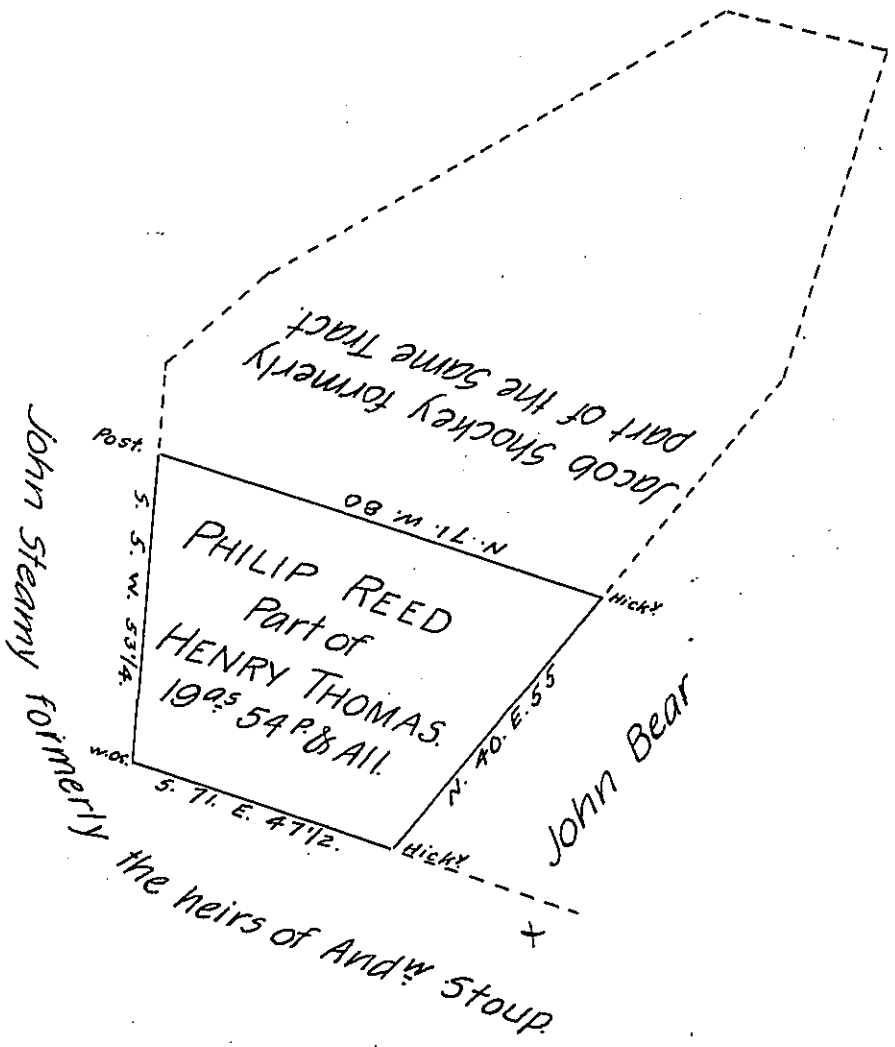 Jacob Shockey formerly
part of the Same Tract.
Post.
N. 71. W. 80
Hick.y
S. 5. W. 53 1/4.
PHILIP REED
Part of
HENRY THOMAS.
19 a.s 54 P. & All.
N. 40. E. 55
W.O.
S. 71. E. 47 1/2.
Hick.y
John Bear
X
John Steamy formerly the heirs of And.w Stoup.